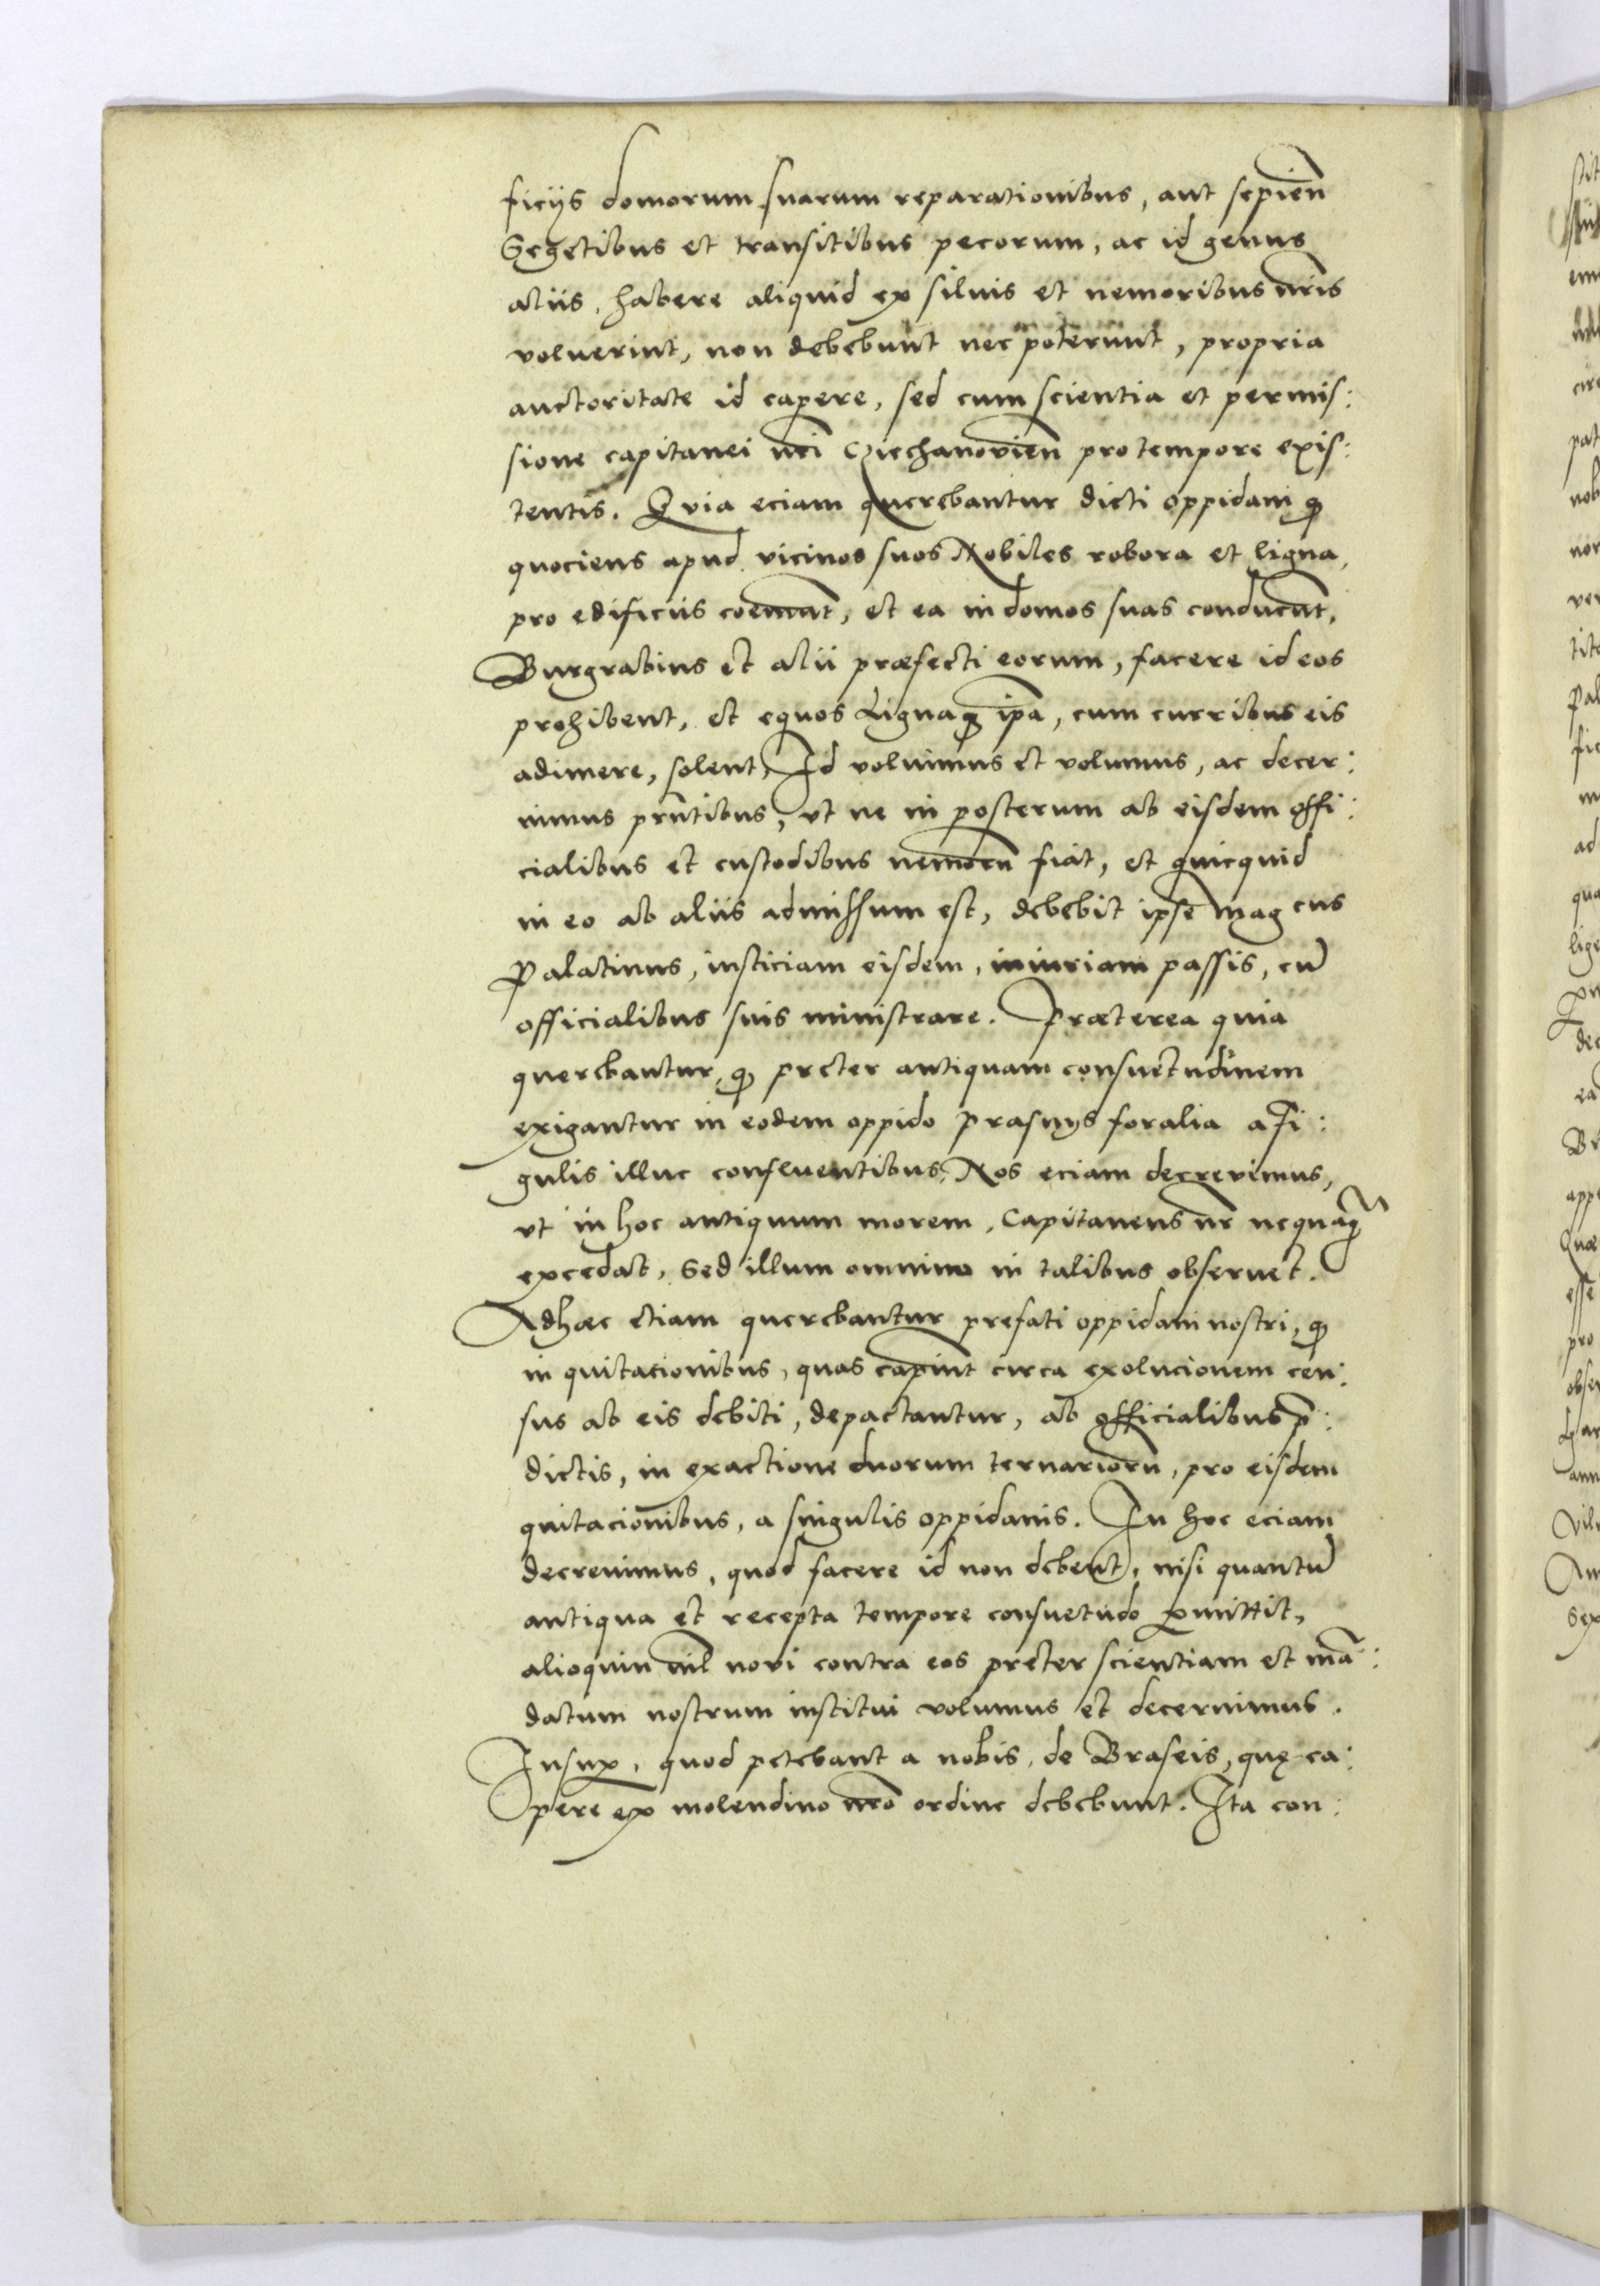 ficijs domorum suarum reparationibus, aut sepien̄
Segetibus et transitibus pecorum, ac id genus
aliis, habere aliquid ex siluis et nemoribus nr̄is
voluerint, non debebunt nec poterunt, propria
auctoritate id capere, sed cum scientia et permis:
sione capitanei nr̄i Cziechanovien̄ pro tempore exis:
tentis. Quia eciam querebantur dicti oppidani ꝙ
quociens apud vicinos suos Nobiles robora et ligna,
pro edificiis coemūt, et ea in domos suas conducūt,
Burgrabius et alii præfecti eorum, facere id eos
prohibent, et equos Lignaqꝫ ip̄a, cum curribus eis
adimere, solent, Id voluimus et volumus, ac decer:
nimus pn̄tibus, vt ne in posterum ab eisdem offi:
cialibus et custodibus nemorū fiat, et quicquid
in eo ab aliis admissum est, debebit ipse Mag cus
Palatinus, iusticiam eisdem, iniuriam passis, cū
officialibus suis ministrare. Præterea quia
querebantur, ꝙ preter antiquam consuetudinem
exigantur in eodem oppido Prasnys foralia a fi:
gulis illuc confluentibus, Nos eciam decrevimus,
vt in hoc antiquum morem, Capitaneus nr̄ nequaꝙ̄
excedat, Sed illum omnino in talibus obseruet.
Adhæc etiam querebantur prefati oppidani nostri, ꝙ
in quitacionibus, quas capiūt circa exolucionem cen:
sus ab eis debiti, depactantur, ab officialibus p̄:
dictis, in exactione duorum ternariorū, pro eisdem
quitacionibus, a singulis oppidanis. In hoc eciam
decreuimus, quod facere id non debent, nisi quantū
antiqua et recepta tempore consuetudo ꝑmittit,
alioquin nil novi contra eos preter scientiam et mā:
datum nostrum institui volumus et decernimus.
Insuꝑ, quod petebant a nobis, de Braseis, quę ca:
pere ex molendino nr̄o ordine debebunt. Ita con: